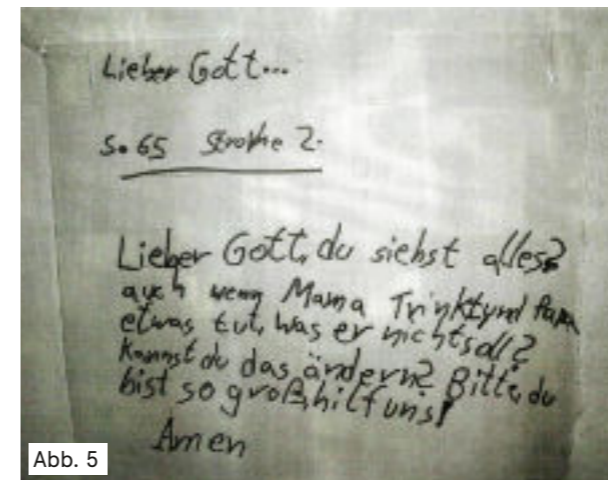 Lieber Gott...
S. 65 Strophe 2.
Lieber Gott, du siehst alles?
auch wenn Mama Trinkt und Papa
etwas tut, was er nicht soll?
Kannst du das ändern? Bitte, du
bist so groß, hilf uns!
Amen
Abb. 5